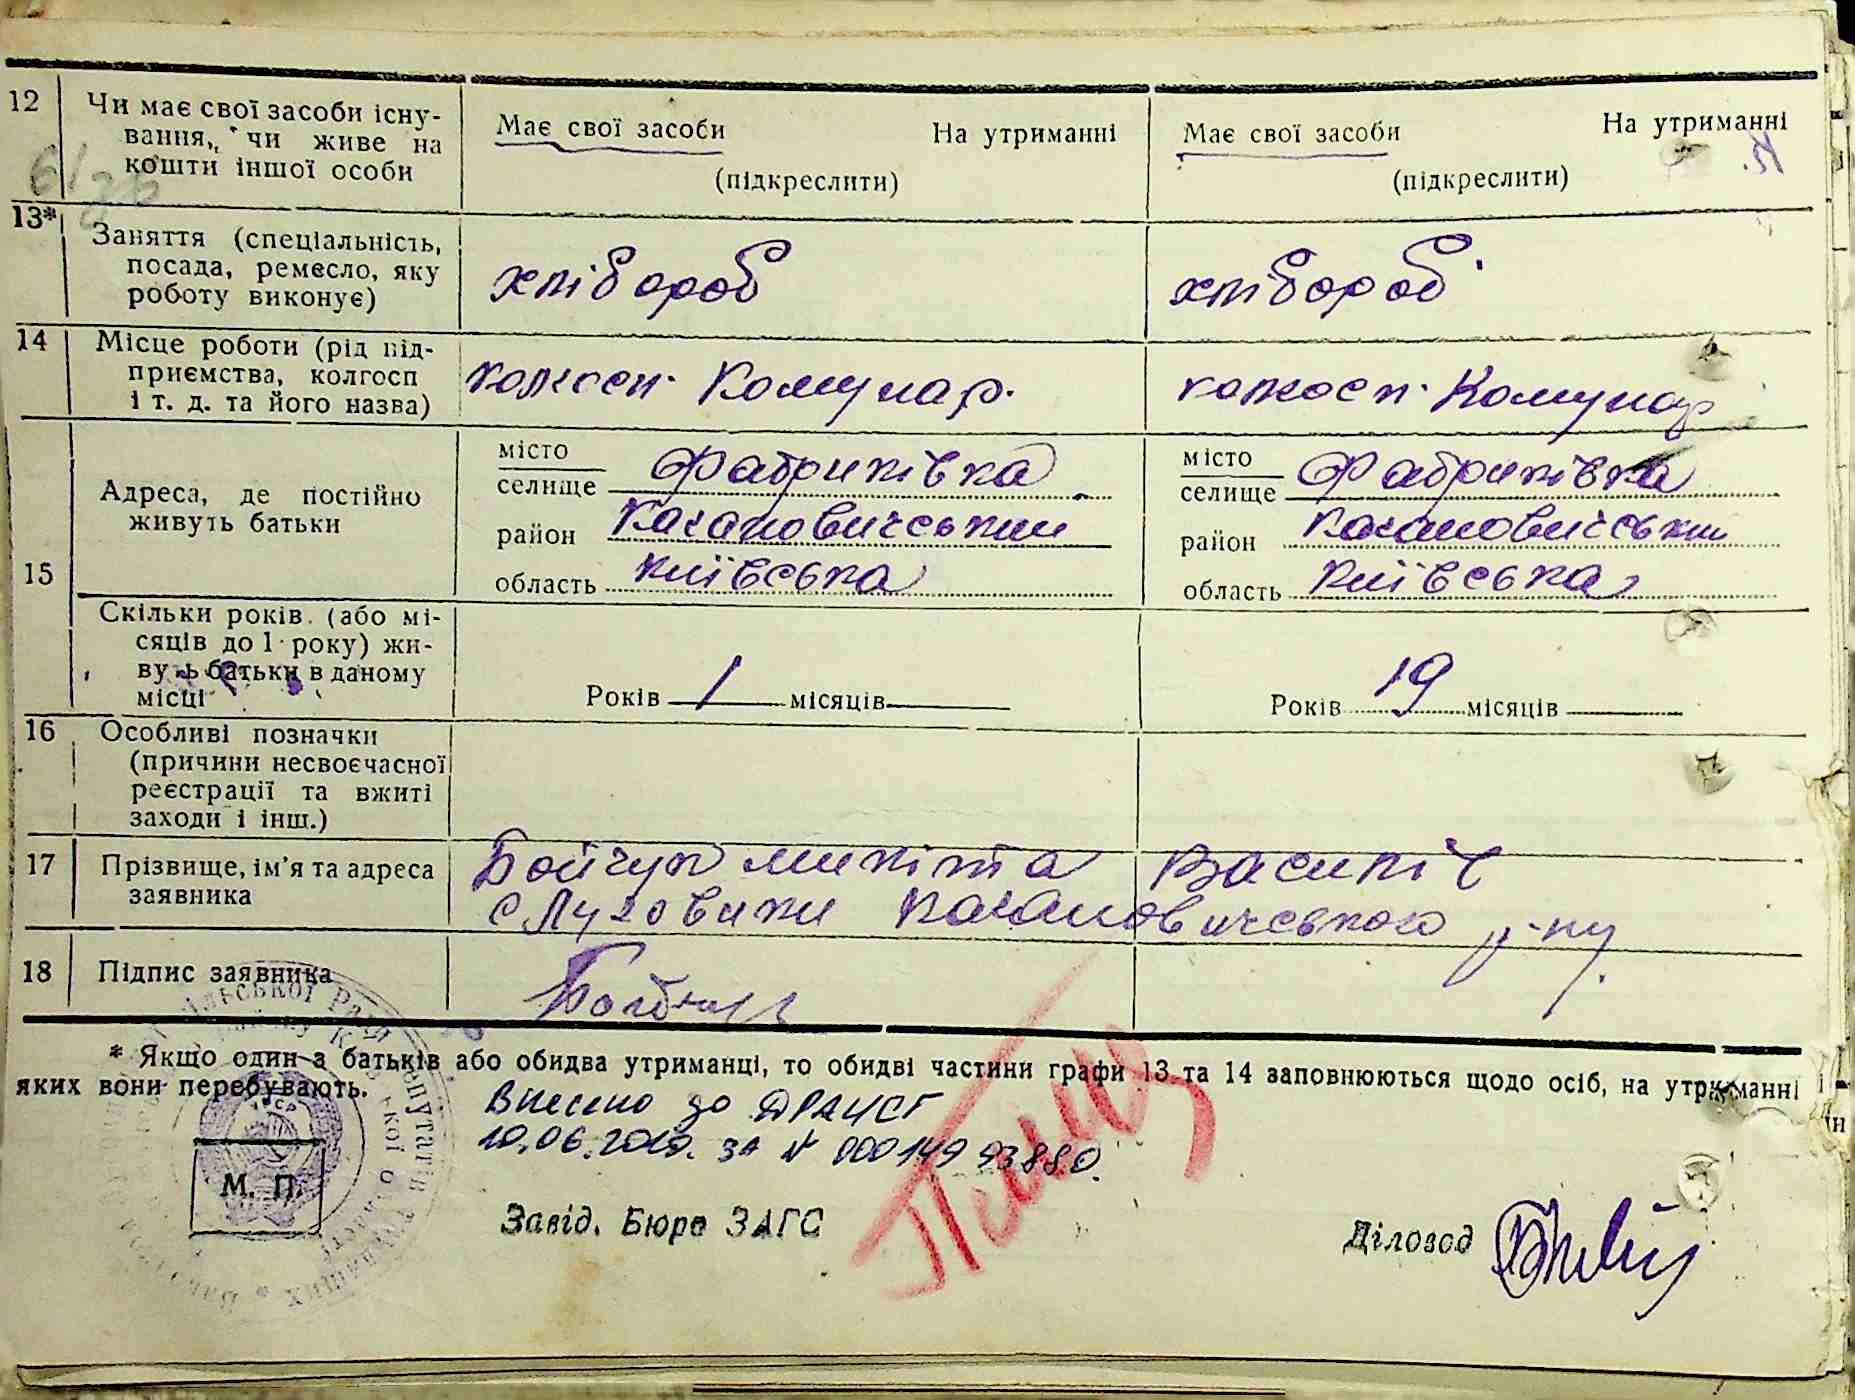 12
Чи має свої засоби існу-
вання, чи живе на
кошти іншої особи
Має свої засоби На утриманні
(підкреслити)
Має свої засоби На утриманні
(підкреслити)
13*
Заняття (спеціальність,
посада, ремесло, яку
роботу виконує)
хлібороб
хлібороб
14
Місце роботи (рід під-
приємства, колгосп
і т. д. та його назва)
колгосп. Комунар.
колгосп. Комунар
15
Адреса, де постійно
живуть батьки
місто
селище Фабриківка
район Кагановичський
область Київська
місто
селище Фабриківка
район Кагановичський
область Київська
Скільки років (або мі-
сяців до 1 року) жи-
вуть батьки в даному
місці
Років 1 місяців
Років 19 місяців
16
Особливі позначки
(причини несвоєчасної
реєстрації та вжиті
заходи і інш.)
17
Прізвище, ім'я та адреса
заявника
Бойчук Микита Василіч
с Луговики Кагановичського р-ну.
18
Підпис заявника
* Якщо один з батьків або обидва утриманці, то обидві частини графи 13 та 14 заповнюються щодо осіб, на утриманні
яких вони перебувають.
Внесено до ДРАЦСГ
10.06.2015. за № 00014993880.
М. П.
Завід. Бюро ЗАГС
Діловод